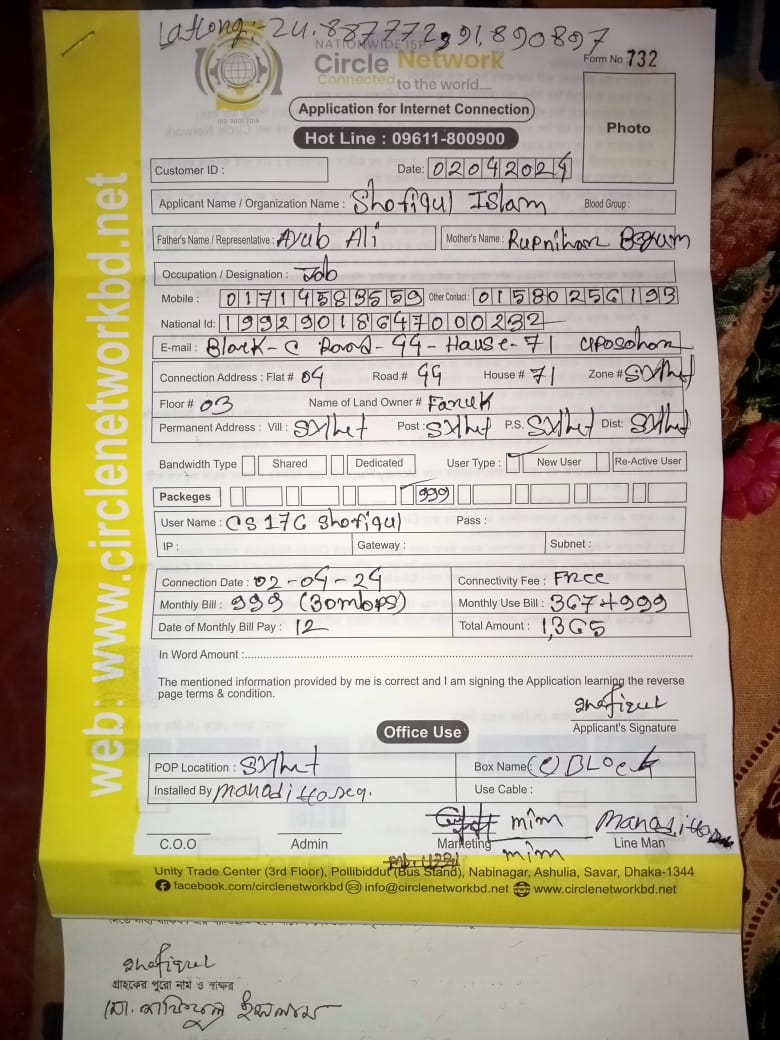 Latlong:- 24.887772, 91.890897
NATIONWIDE ISP
Circle Network
Connected to the world.....
ISO 9001:2015
Form No :732
Photo
Application for Internet Connection
Hot Line : 09611-800900
Customer ID :
Date: 02042024
Applicant Name / Organization Name : Shofiqul Islam Blood Group :
Father's Name / Representative : Ayub Ali Mother's Name : Rupnihar Begum
Occupation / Designation : Job
Mobile : 01714583559 Other Contact : 01580256193
National Id: 19929018647000232
E-mail : Block-C Road-44-House-71 Uposohor
Connection Address : Flat # 04 Road # 44 House # 71 Zone # Sylhet
Floor # 03 Name of Land Owner # Faruk
Permanent Address : Vill : Sylhet Post : Sylhet P.S. Sylhet Dist: Sylhet
Bandwidth Type Shared Dedicated User Type : New User Re-Active User
Packeges 999
User Name : CS17C Shofiqul Pass :
IP : Gateway : Subnet :
Connection Date : 02-04-24 Connectivity Fee : Free
Monthly Bill : 999 (30mbps) Monthly Use Bill : 367+999
Date of Monthly Bill Pay : 12 Total Amount : 1,365
In Word Amount :
The mentioned information provided by me is correct and I am signing the Application learning the reverse
page terms & condition.
Shofiqul
Applicant's Signature
Office Use
POP Locatition : Sylhet Box Name (C) BLOCK
Installed By
Use Cable :
mim
C.O.O Admin Marketing Line Man
mim
Unity Trade Center (3rd Floor), Pollibiddut (Bus Stand), Nabinagar, Ashulia, Savar, Dhaka-1344
facebook.com/circlenetworkbd info@circlenetworkbd.net www.circlenetworkbd.net
web: www.circlenetworkbd.net
Shofiqul
গ্রাহকের পুরো নাম ও স্বাক্ষর
মো. শফিকুল ইসলাম